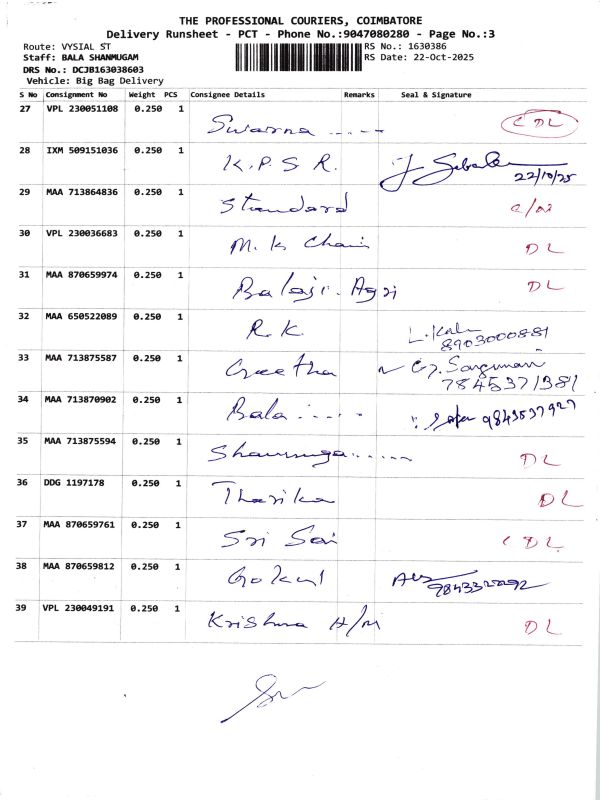 THE PROFESSIONAL COURIERS, COIMBATORE
Delivery Runsheet - PCT - Phone No.:9047080280 - Page No.:3
Route: VYSIAL ST
RS No.: 1630386
Staff: BALA SHANMUGAM
RS Date: 22-Oct-2025
DRS No.: DCJB163038603
Vehicle: Big Bag Delivery
S No Consignment No Weight PCS Consignee Details Remarks Seal & Signature
27 VPL 230051108 0.250 1 Swarna ..... DL
28 IXM 509151036 0.250 1 K.P.S.R.
22/10/25
29 MAA 713864836 0.250 1 Standard
30 VPL 230036683 0.250 1 M.K Chain DL
31 MAA 870659974 0.250 1 Balaji. Agri DL
32 MAA 650522089 0.250 1 R.K.
8903000881
33 MAA 713875587 0.250 1 Geetha
7845371381
34 MAA 713870902 0.250 1 Bala ..... 9843537927
35 MAA 713875594 0.250 1 Shanmuga ..... DL
36 DDG 1197178 0.250 1 Tharika DL
37 MAA 870659761 0.250 1 Sri Sai DL
38 MAA 870659812 0.250 1 Gokul
39 VPL 230049191 0.250 1 Krishna H/M DL